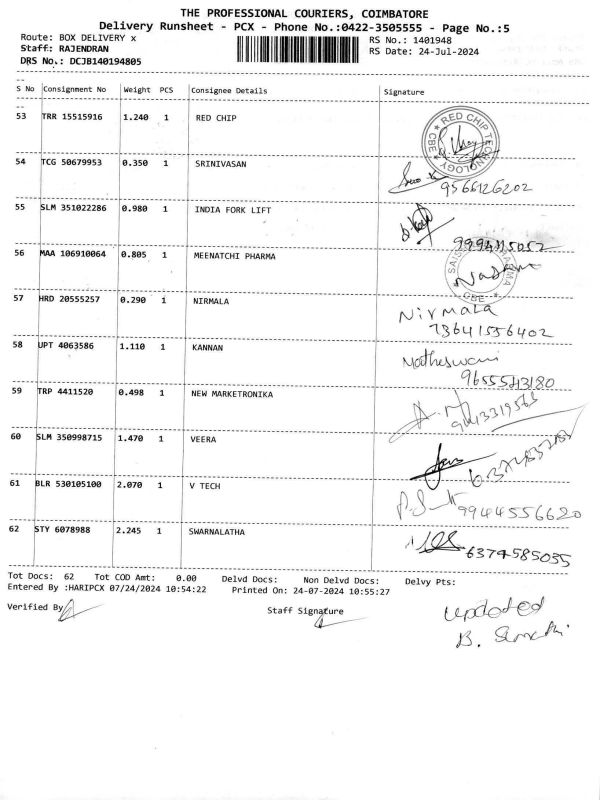 THE PROFESSIONAL COURIERS, COIMBATORE
Delivery Runsheet - PCX - Phone No.:0422-3505555 - Page No.:5
Route: BOX DELIVERY x RS No.: 1401948
Staff: RAJENDRAN RS Date: 24-Jul-2024
DRS No.: DCJB140194805
S No Consignment No Weight PCS Consignee Details Signature
53 TRR 15515916 1.240 1 RED CHIP
RED CHIP TECHNOLOGY CBE
54 TCG 50679953 0.350 1 SRINIVASAN
9566126202
55 SLM 351022286 0.980 1 INDIA FORK LIFT
9994115052
56 MAA 106910064 0.805 1 MEENATCHI PHARMA
CBE
57 HRD 20555257 0.290 1 NIRMALA
Nirmala
73641556402
58 UPT 4063586 1.110 1 KANNAN
9655543180
59 TRP 4411520 0.498 1 NEW MARKETRONIKA
60 SLM 350998715 1.470 1 VEERA
61 BLR 530105100 2.070 1 V TECH
9944556620
62 STY 6078988 2.245 1 SWARNALATHA
6374585035
Tot Docs: 62 Tot COD Amt: 0.00 Delvd Docs: Non Delvd Docs: Delvy Pts:
Entered By :HARIPCX 07/24/2024 10:54:22 Printed On: 24-07-2024 10:55:27
Verified By Staff Signature
updated
B.